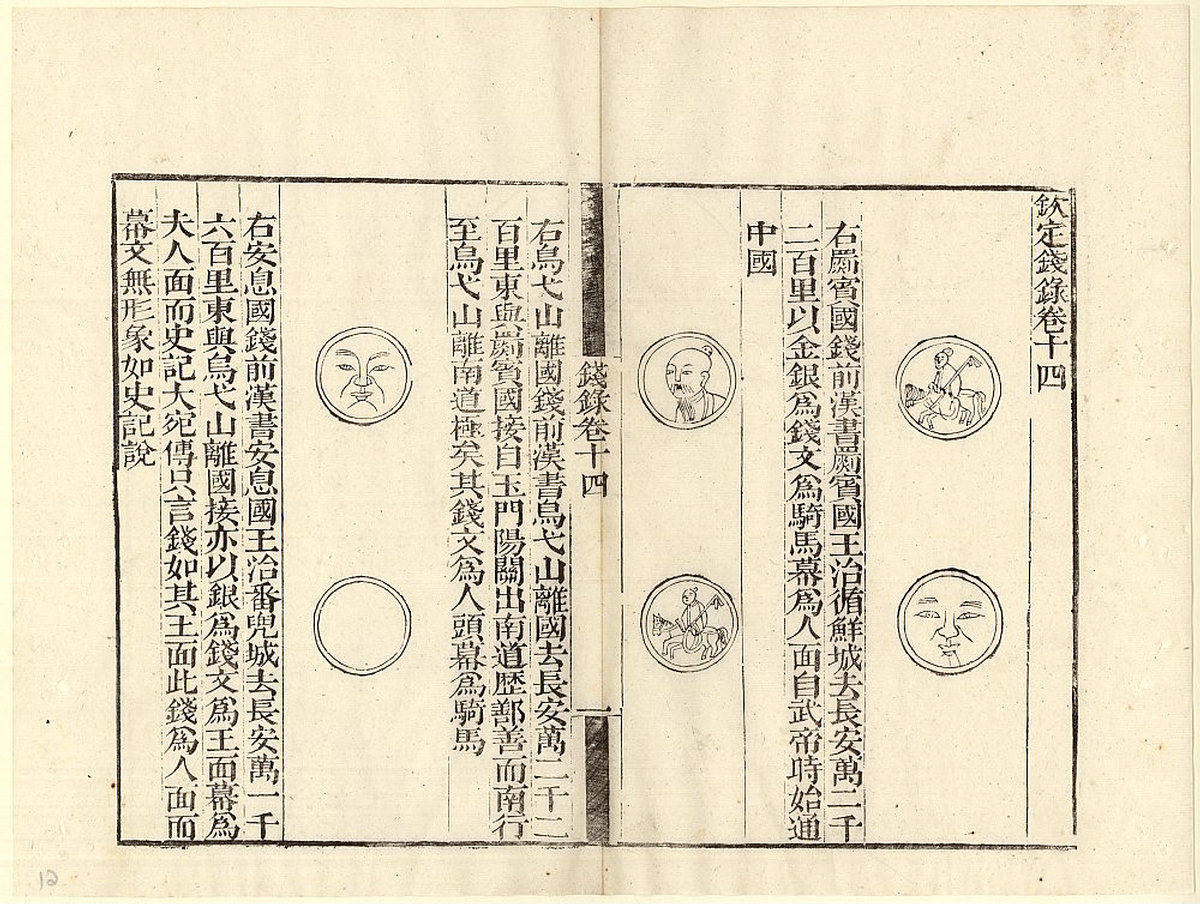 欽定錢錄卷十四
右罽賓國錢前漢書罽賓國王治循鮮城去長安萬二千
二百里以金銀為錢文為騎馬幕為人面自武帝時始通
中國
錢錄卷十四
一
右烏弋山離國錢前漢書烏弋山離國去長安萬二千二
百里東與罽賓國接自玉門陽關出南道歴鄯善而南行
至烏弋山離南道極矣其錢文為人頭幕為騎馬
右安息國錢前漢書安息國王治番兜城去長安萬一千
六百里東與烏弋山離國接亦以銀為錢文為王面幕為
夫人面而史記大宛傳只言錢如其王面此錢為人面而
幕文無形象如史記說
12